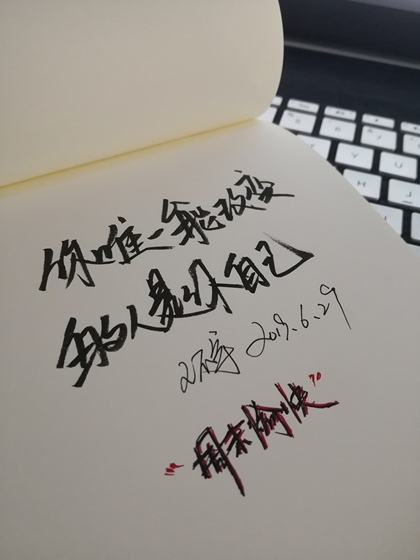 你唯一能改变
的人是你自己
2019.6.29
"周末愉快"